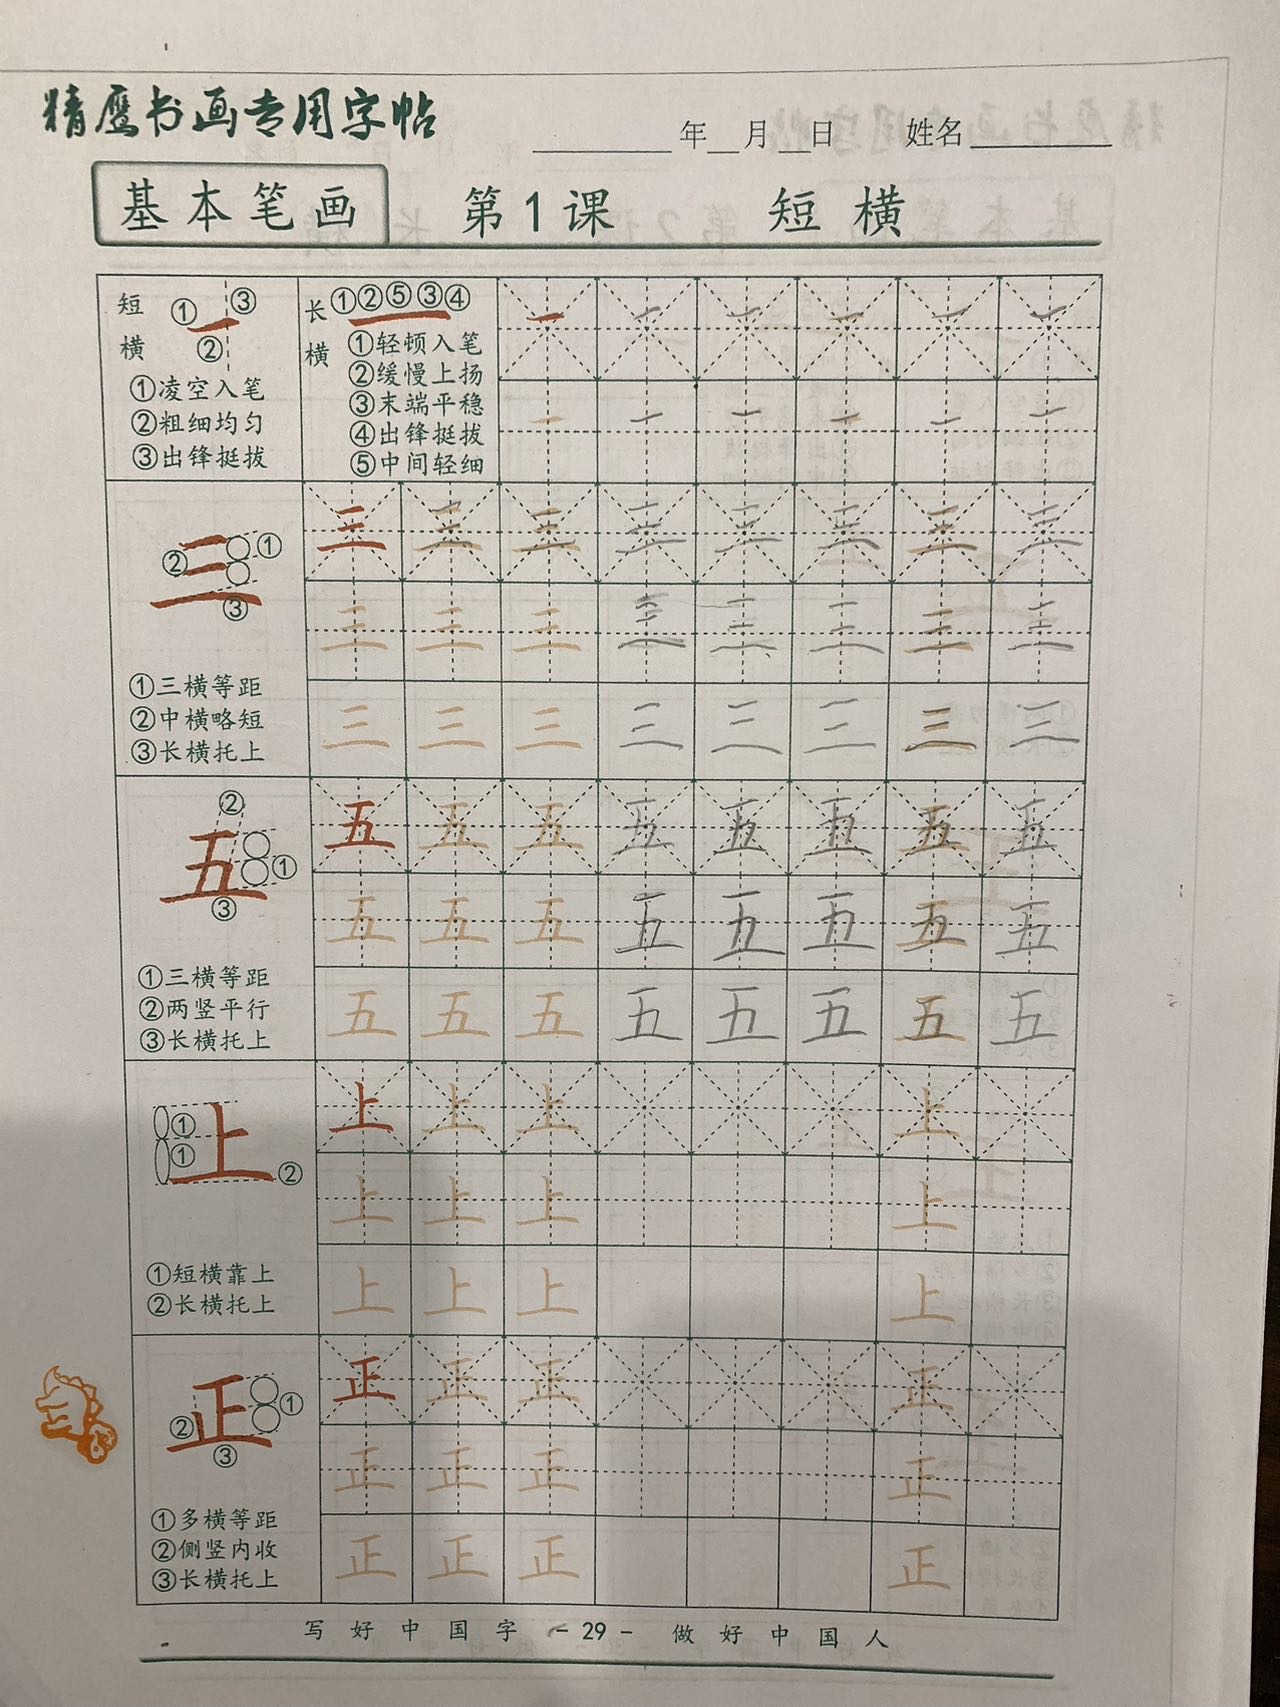 精鹰书画专用字帖
年 月 日 姓名
基本笔画 第1课 短横
短横
① ③
②
①凌空入笔
②粗细均匀
③出锋挺拔
长横
①②⑤③④
①轻顿入笔
②缓慢上扬
③末端平稳
④出锋挺拔
⑤中间轻细
一 一 一 一 一 一
一 一 一 一 一 一
三
① ② ③
①三横等距
②中横略短
③长横托上
三 三 三 三 三 三 三 三
三 三 三 三 三 三 三 三
三 三 三 三 三 三 三 三
五
② ① ③
①三横等距
②两竖平行
③长横托上
五 五 五 五 五 五 五 五
五 五 五 五 五 五 五 五
五 五 五 五 五 五 五 五
上
① ① ②
①短横靠上
②长横托上
上 上 上 上
上 上 上 上
上 上 上 上
正
① ② ③
①多横等距
②侧竖内收
③长横托上
正 正 正 正
正 正 正 正
正 正 正 正
写好中国字 - 29 - 做好中国人